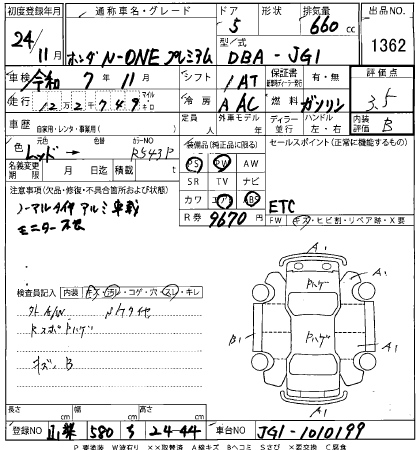 初度登録年月 通称車名・グレード ドア 形状 排気量 出品NO
24/11月 ホンダ N-ONE プレミアム 5 660cc 1362
型/式 DBA-JG1
車検 令和 7年11月 シフト 1AT 保証書 有・無 評価点
走行 12万2千749 マイル キロ 冷房 AAC 燃料 ガソリン 3.5
車歴 自家用・レンタ・事業用( ) 定員 人 外車モデル 年 ディーラー 並行 ハンドル 左・右 内装評価 B
色 レッド→ 色替 カラーNO R543P 装備品(純正品に限る) セールスポイント(正常に機能するもの)
PS PW AW
名義変更期限 月 日 積載 t SR TV ナビ
注意事項(欠品・修復・不具合箇所および状態) カワ エアB ABS ETC
ノーアルタイヤ アルミ 車載
R券 9670円 FW キズ・ヒビ割・リペア跡・X要
モニター
A1
A1
検査員記入 内装 キズ・汚レ・コゲ・穴・スレ・キレ
外 A/W
Pハゲ
B1 Pハゲ
キズ、B
A1
A1
長さ cm 幅 cm 高さ cm
登録NO 山梨 580 24-44 車台NO JG1-1010199
P 要塗装 W波有り ××取替済 A線キズ Bヘコミ Sさび ×要交換 C腐食